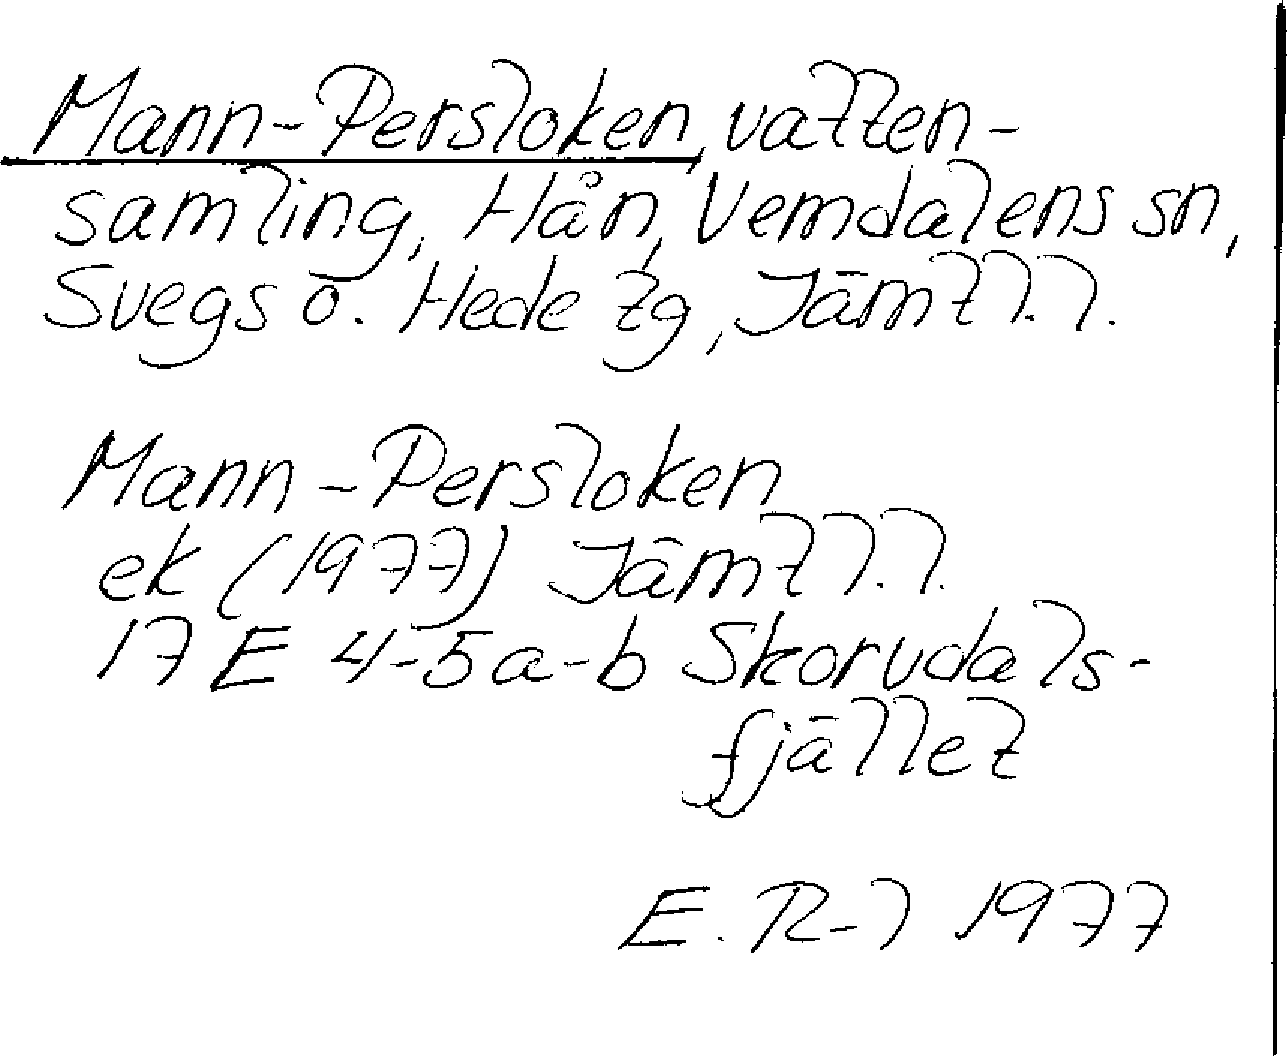 Mann-Persloken, vatten-
samling, Hån, Vemdalens sn,
Svegs o. Hede tg, Jämtl. l.
Mann-Persloken
ek (1977) Jämtl. l.
17 E 4-5a-b Skorvdals-
fjället
E. R-l 1977